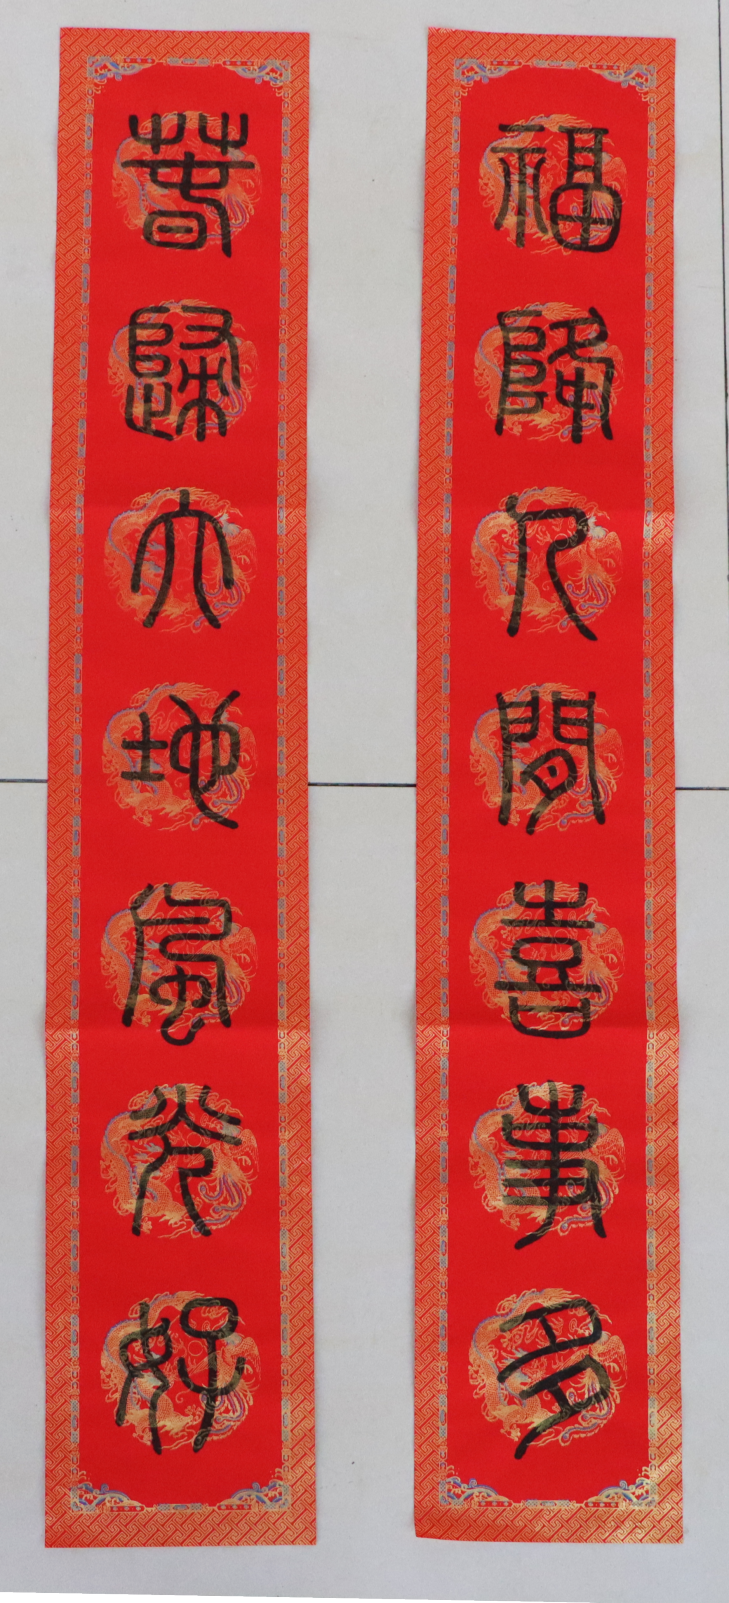 春歸大地風光好
福降人間喜事多